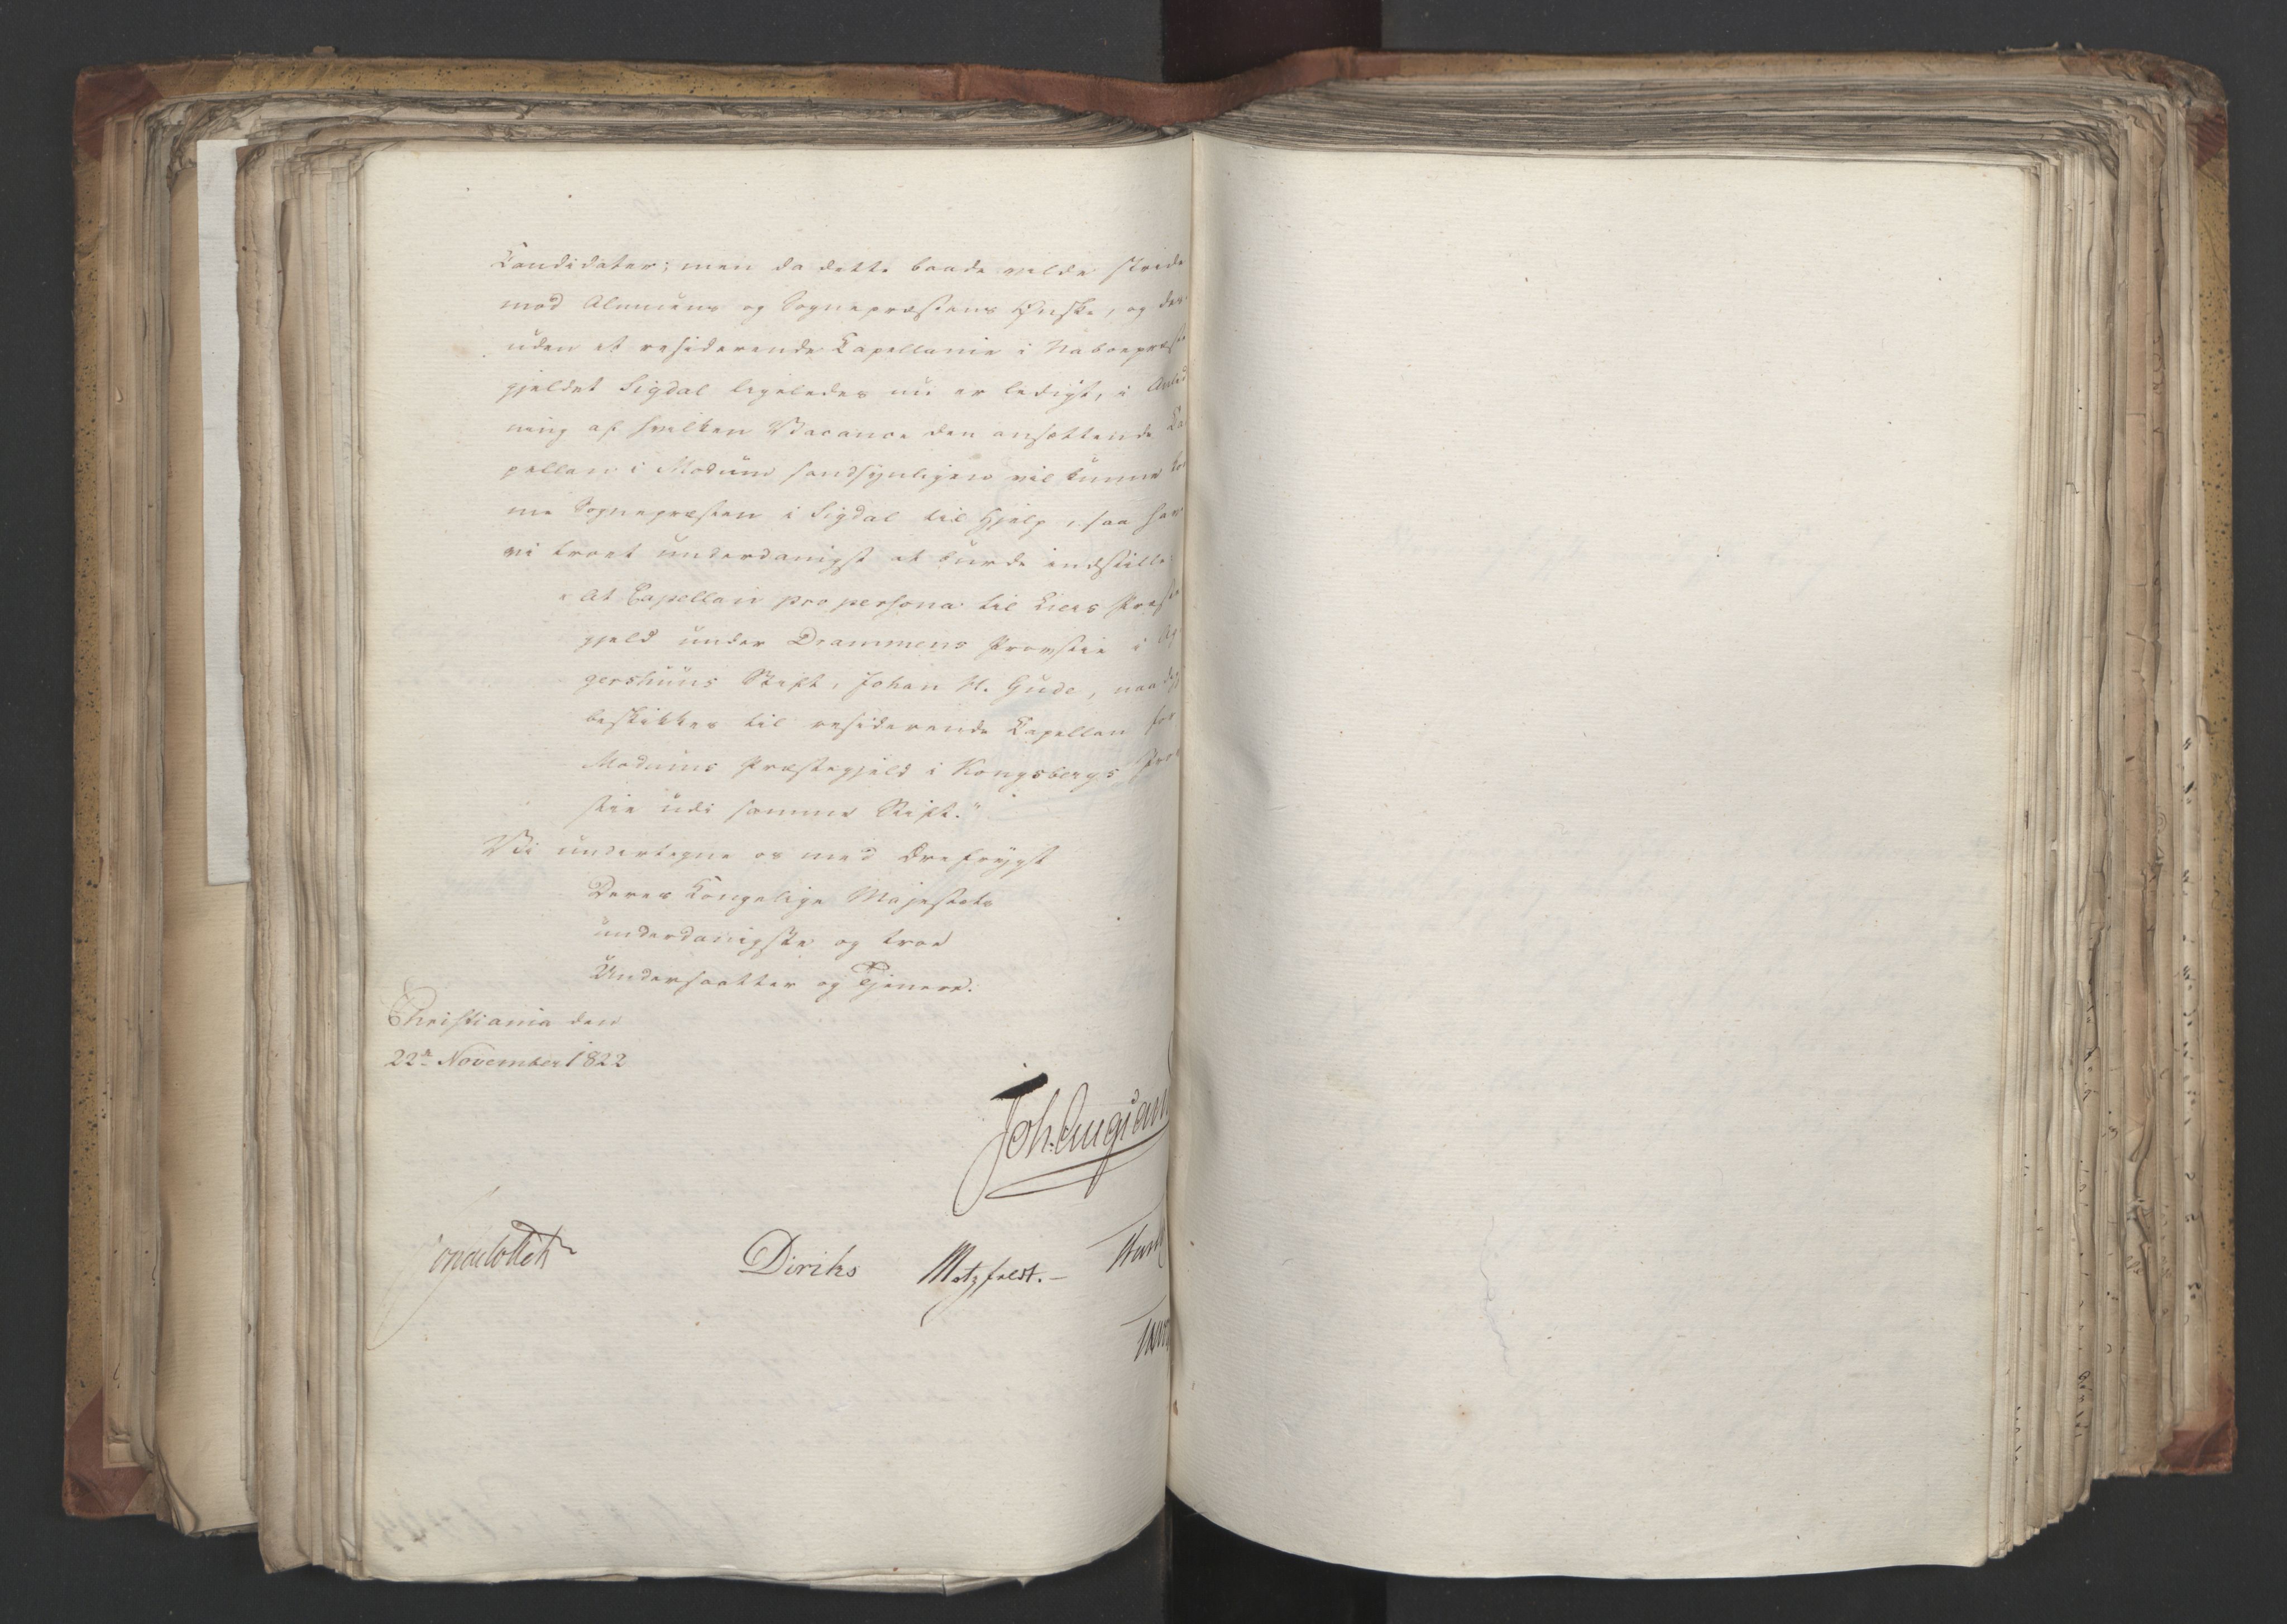 Candidater; men da dette baade vilde stride
mod Almuens og Sognepræstens Ønske, og des-
uden et residerende Capellanie i Naboepræste
gjeldet Sigdal ligeledes nu er ledigt, i Anled
ning af hvilken Vacance den ansættende Ca
pellan i Modum sandsynligen vil kunne kom
me Sognepræsten i Sigdal til Hjelp, saa har
vi troet underdanigst at burde indstille:
"At Capellan pro persona til Liers Præste
gjeld under Drammens Provstie i Ag
gershuus Stift, Johan H. Gude, naadigst
beskikkes til residerende Capellan for
Modums Præstegjeld i Kongsbergs Prov
stie udi samme Stift."
Vi undertegne os med Ærefrygt
Deres Kongelige Majestæts
underdanigste og troe
Undersaatter og Tjenere.
Christiania den
22de November 1822
Joh. Aug Sand
Diriks Motzfeldt.